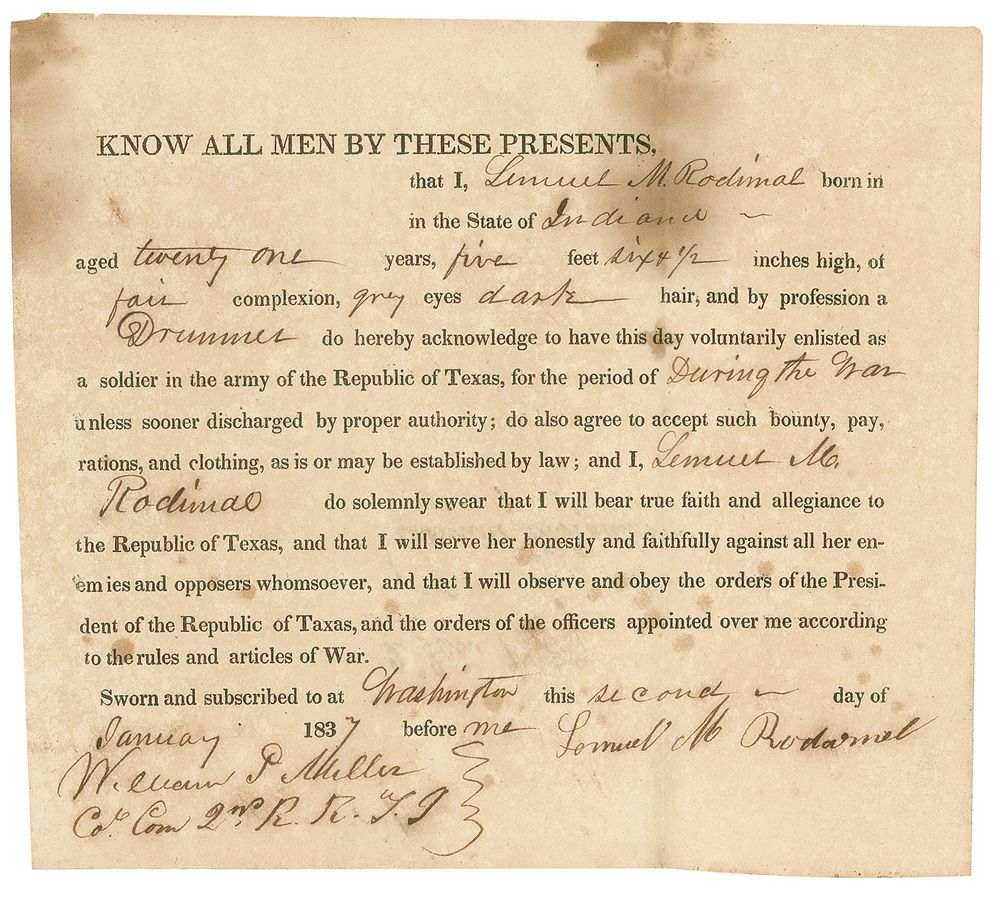 KNOW ALL MEN BY THESE PRESENTS,
that I, Lemuel M. Rodimal born in
in the State of Indiana
aged twenty one years, five feet six & 1/2 inches high, of
fair complexion, grey eyes dark hair, and by profession a
Drummer do hereby acknowledge to have this day voluntarily enlisted as
a soldier in the army of the Republic of Texas, for the period of During the War
unless sooner discharged by proper authority; do also agree to accept such bounty, pay,
rations, and clothing, as is or may be established by law; and I, Lemuel M.
Rodimal do solemnly swear that I will bear true faith and allegiance to
the Republic of Texas, and that I will serve her honestly and faithfully against all her en-
emies and opposers whomsoever, and that I will observe and obey the orders of the Presi-
dent of the Republic of Taxas, and the orders of the officers appointed over me according
to the rules and articles of War.
Sworn and subscribed to at Washington this second day of
January 1837 before me Lemuel M Rodarmel
William P Miller
Col Com 2nd R. R. T. I